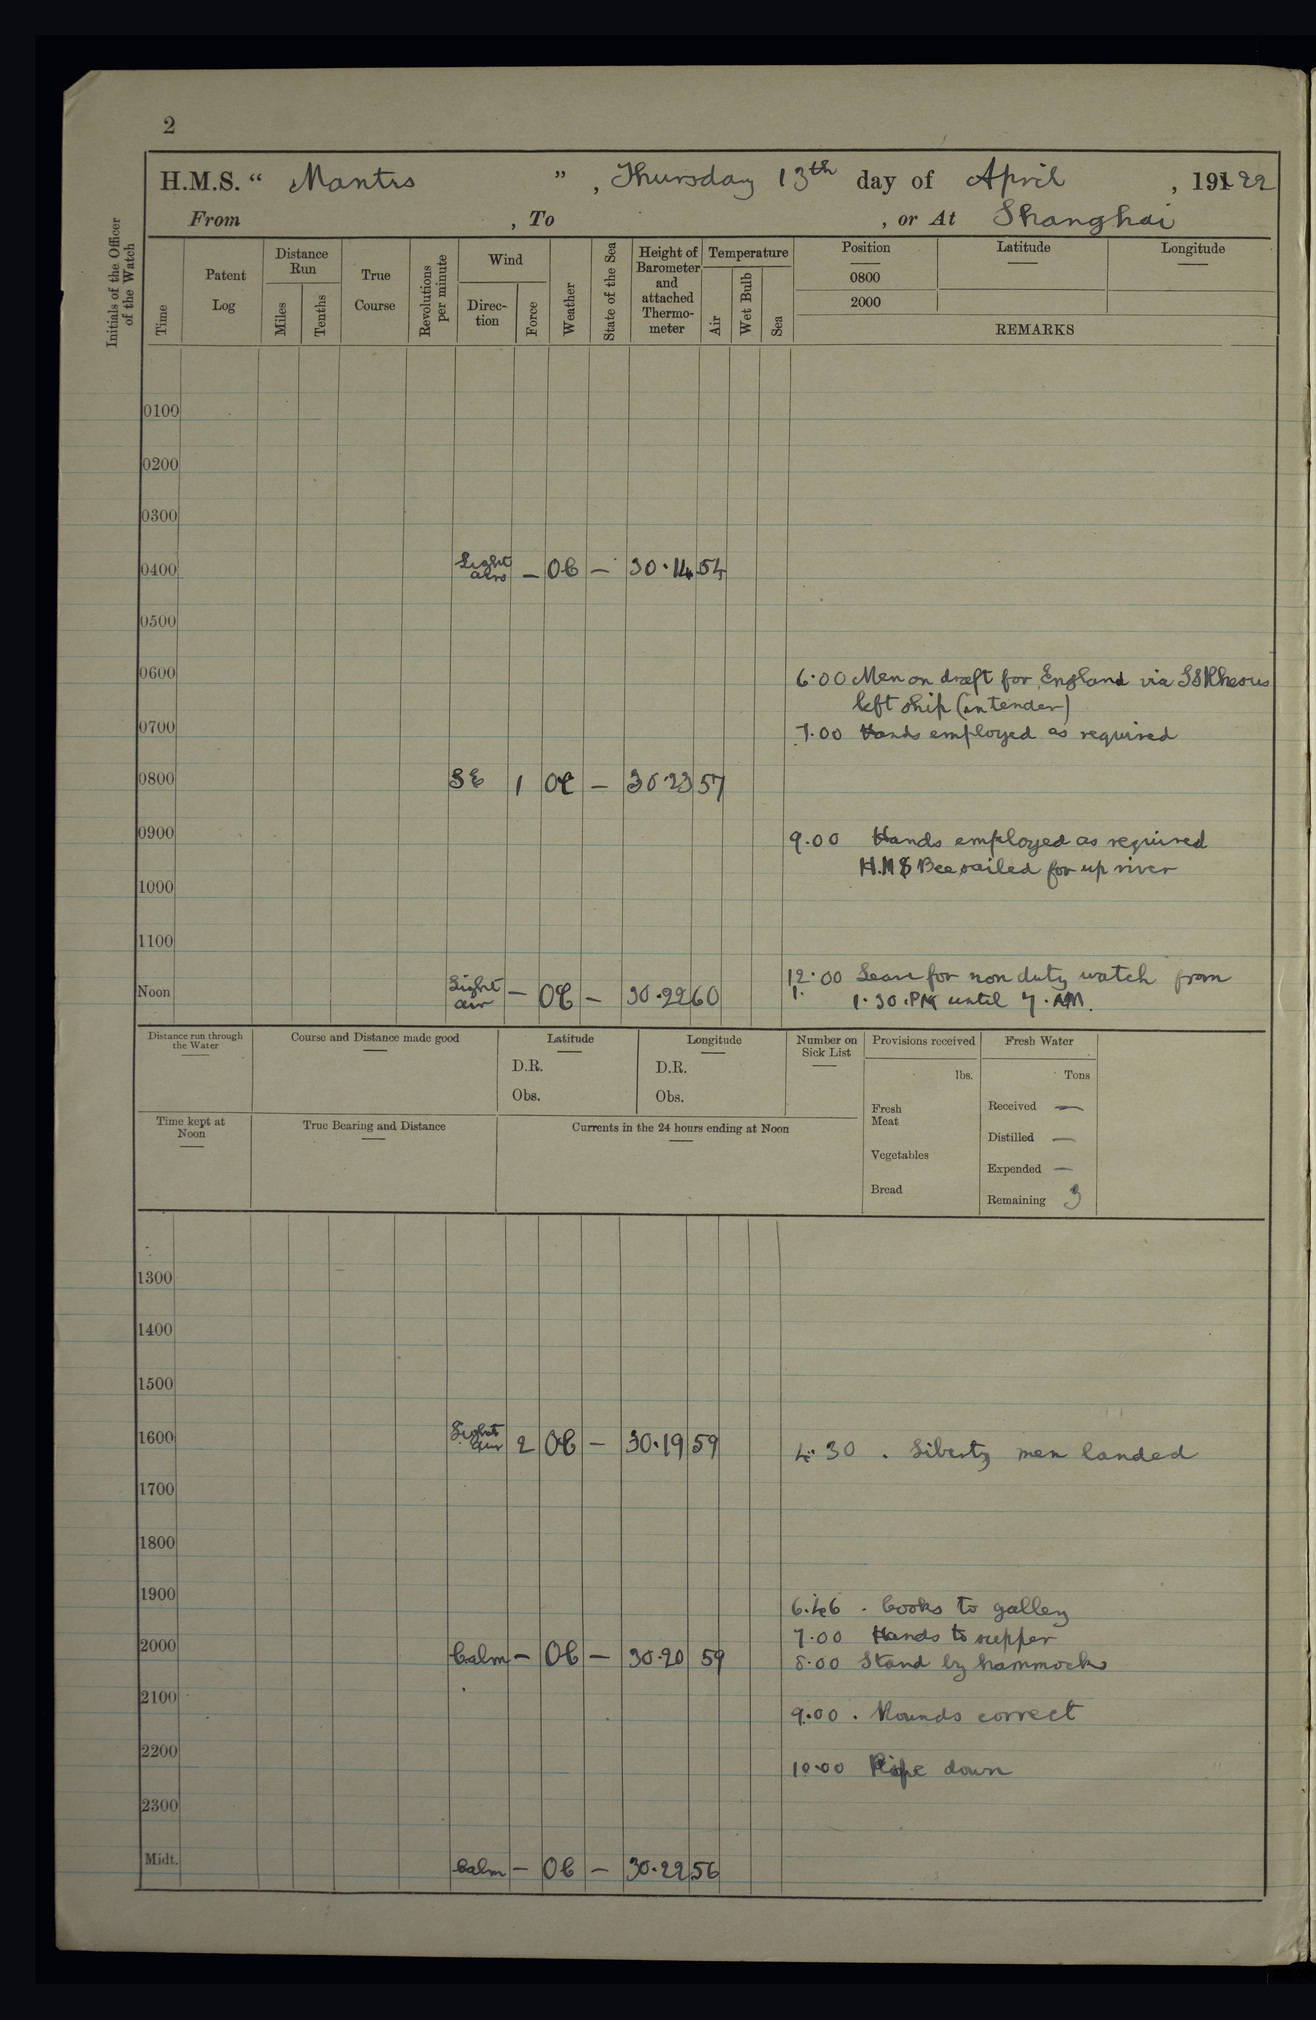 2
H.M.S. “ Mantis ” , Thursday 13th day of April , 19122
From , To , or At Shanghai
Initials of the Officer of the Watch
Time
Patent Log
Distance Run
Miles
Tenths
True Course
Revolutions per minute
Wind
Direc-tion
Force
Weather
State of the Sea
Height of Barometer and attached Thermo-meter
Temperature
Air
Wet Bulb
Sea
Position
Latitude
Longitude
0800
2000
REMARKS
0100
0200
0300
0400 Light airs — OC — 30.14 54
0500
0600
6.00 Men on draft for England via SS Rhesus
left ship (in tender)
0700
7.00 Hands employed as required
0800 SE 1 OC — 30.23 57
0900
9.00 Hands employed as required
H.M.S Bee sailed for up river
1000
1100
12.00 Leave for non duty watch from
Noon Light air — OC — 30.22 60
1.30.PM until 7.AM.
Distance run through the Water
Course and Distance made good
Latitude
Longitude
Number on Sick List
Provisions received
Fresh Water
D.R.
D.R.
lbs.
Tons
Obs.
Obs.
Fresh Meat
Received —
Time kept at Noon
True Bearing and Distance
Currents in the 24 hours ending at Noon
Distilled —
Vegetables
Expended —
Bread
Remaining 3
1300
1400
1500
1600 Light air 2 OC — 30.19 59
4.30 . Liberty men landed
1700
1800
1900
6.46 . Cooks to galley
7.00 Hands to supper
2000 Calm — OC — 30.20 59
8.00 Stand by hammocks
2100
9.00 . Rounds correct
2200
10.00 Pipe down
2300
Midt. Calm — OC — 30.22 56